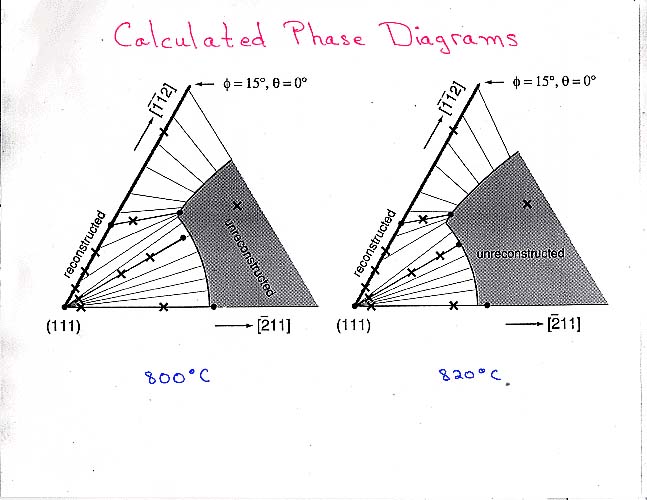 Calculated Phase Diagrams
[1̅1̅2]
← ϕ = 15°, θ = 0°
reconstructed
unreconstructed
(111)
→ [2̅11]
800°C
[1̅1̅2]
← ϕ = 15°, θ = 0°
reconstructed
unreconstructed
(111)
→ [2̅11]
820°C.